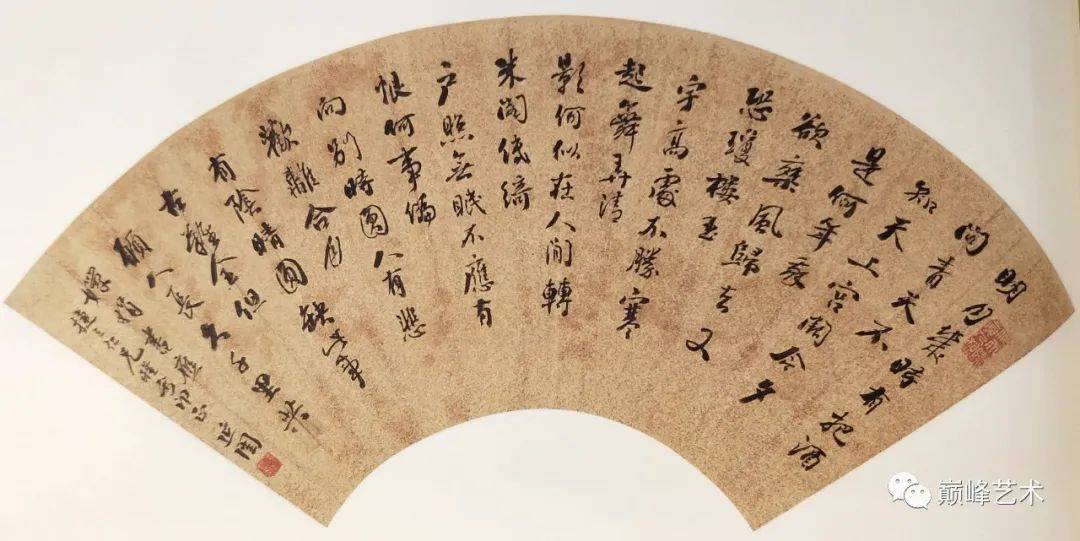 明月幾時有把酒
問青天不
知天上宮闕今夕
是何年
欲乘風歸去又
恐瓊樓玉
宇高處不勝寒
起舞弄清
影何似在人間轉
朱閣低綺
户照無眠不應有
恨何事偏
向別時圓人有悲
歡離合月
有陰晴圓缺此事
古難全但
願人長久千里共
嬋娟 書應
仁兄雅屬即正
巅峰艺术